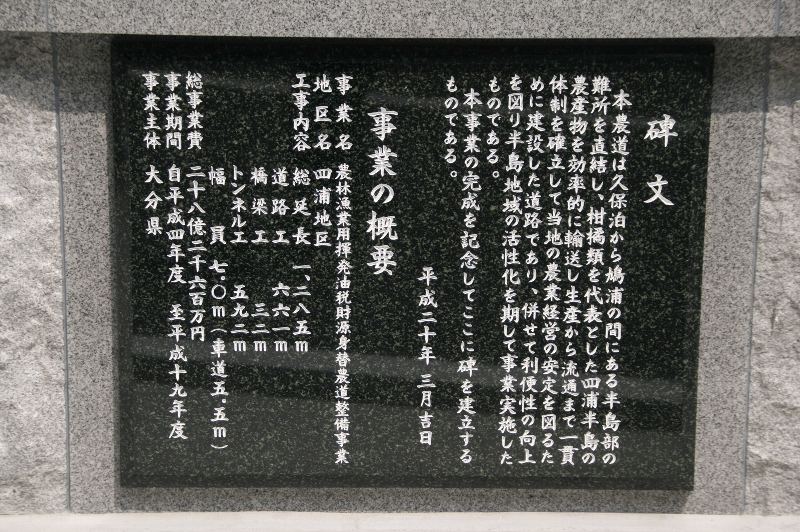 碑文
本農道は久保泊から鳩浦の間にある半島部の
難所を直結し、柑橘類を代表とした四浦半島の
農産物を効率的に輸送し生産から流通まで一貫
体制を確立して当地の農業経営の安定を図るた
めに建設した道路であり、併せて利便性の向上
を図り半島地域の活性化を期して事業実施した
ものである。
本事業の完成を記念してここに碑を建立する
ものである。
平成二十年 三月吉日
事業の概要
事業名 農林漁業用揮発油税財源身替農道整備事業
地区名 四浦地区
工事内容 総延長 一、二八五m
道路工 六六一m
橋梁工 三二m
トンネル工 五九二m
幅員 七・〇m(車道五・五m)
総事業費 二十八億二千六百万円
事業期間 自平成四年度 至平成十九年度
事業主体 大分県